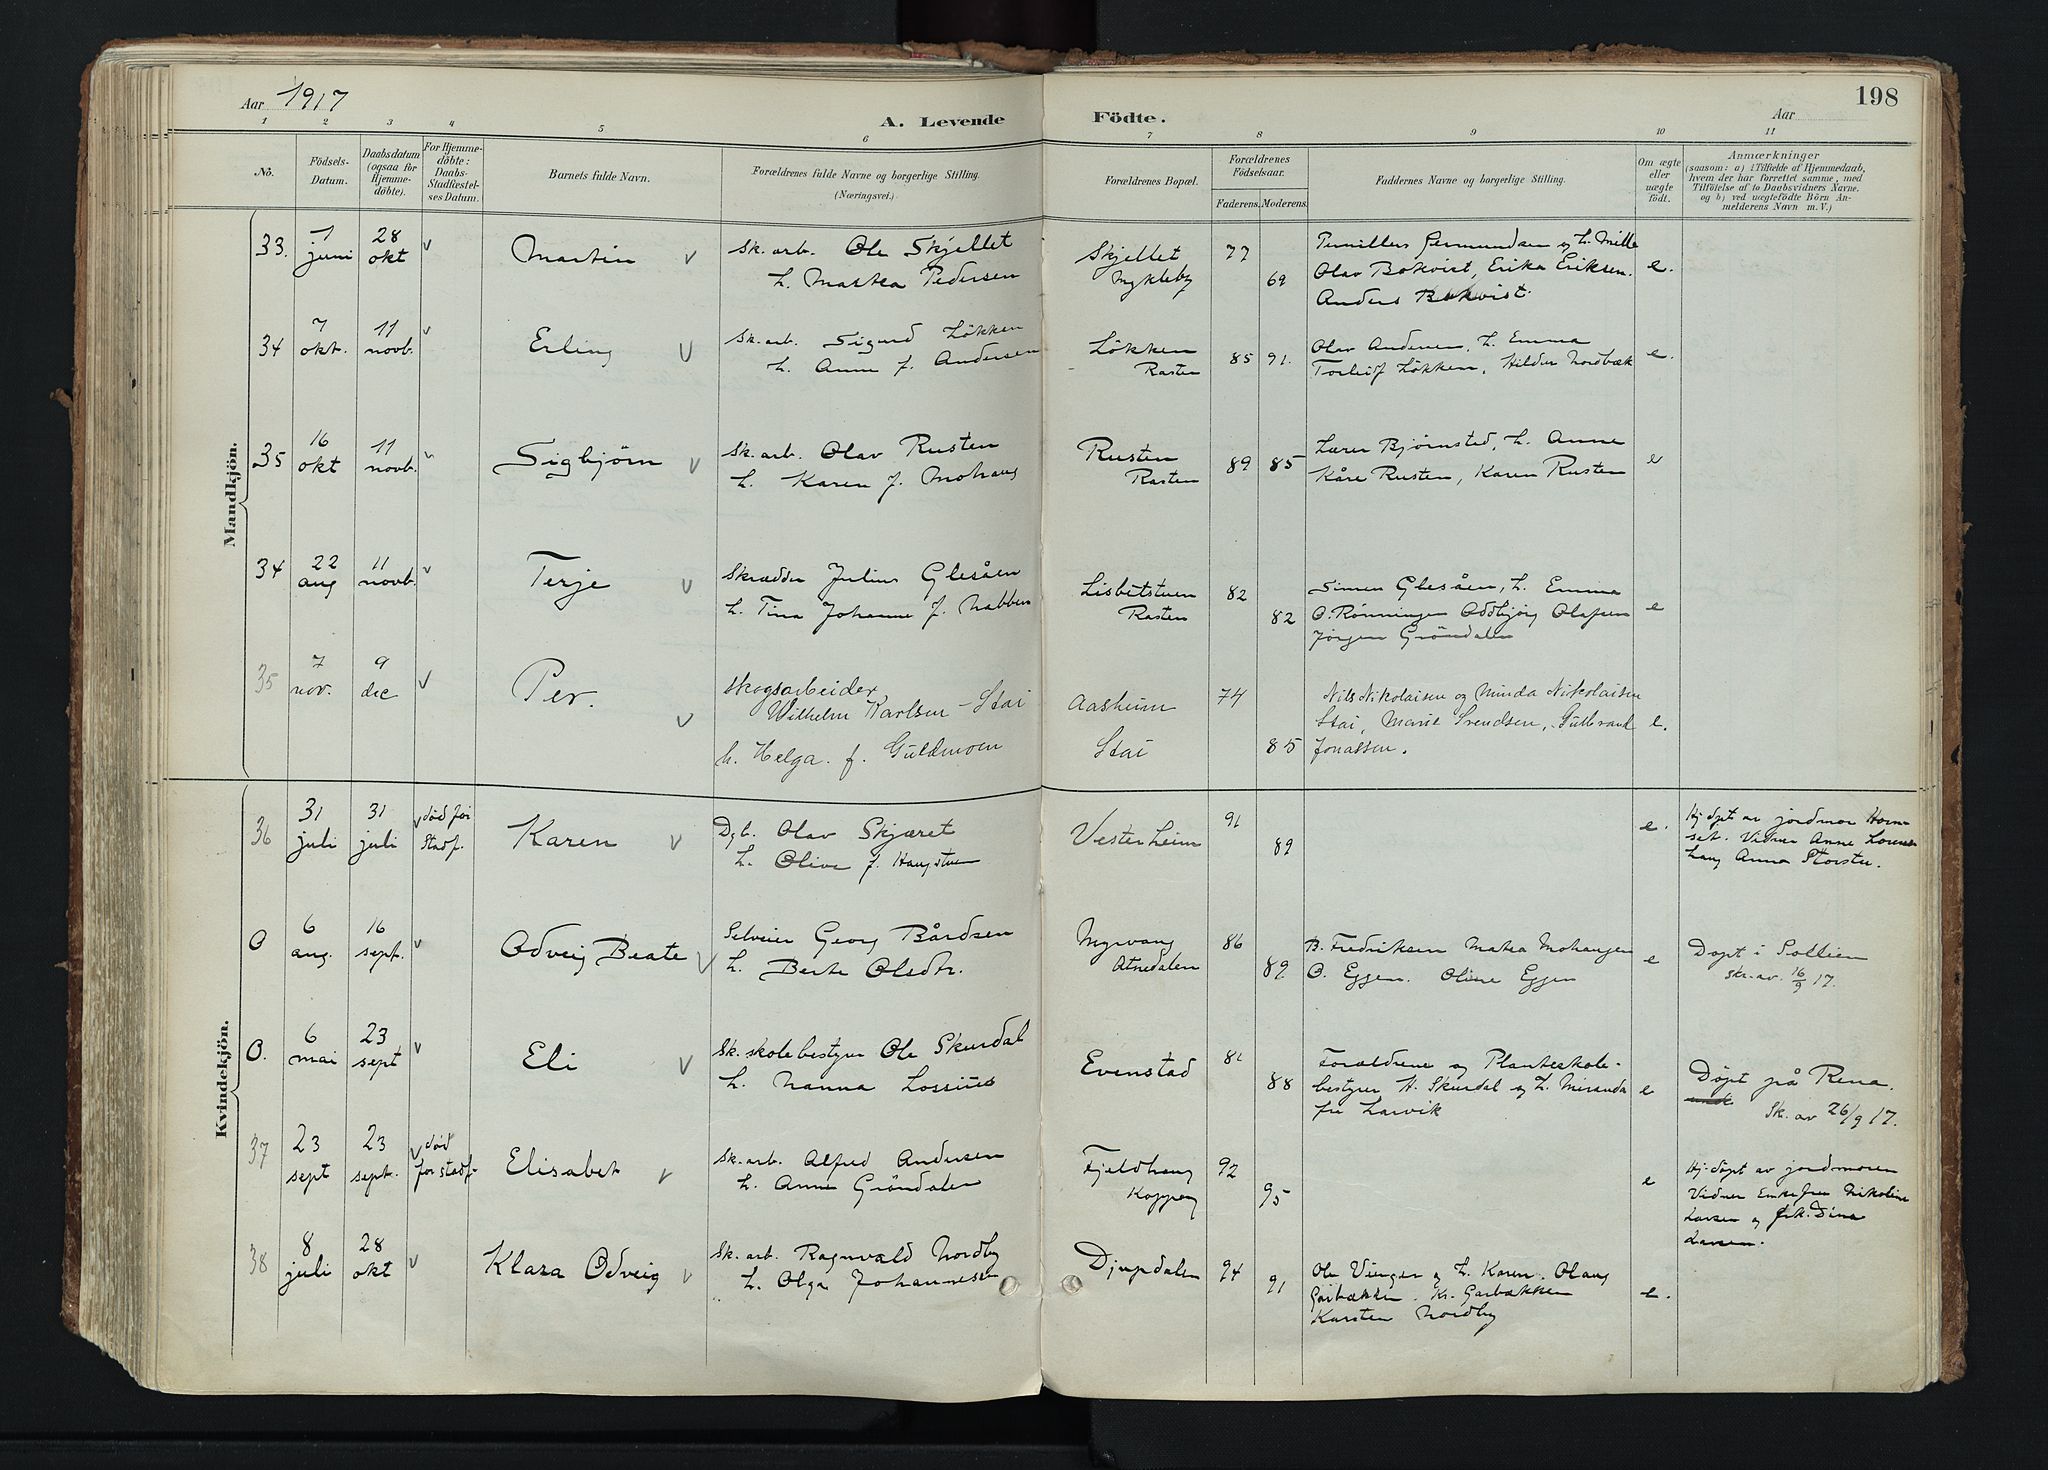 Aar 1917
A. Levende Födte.
Aar
198
1 2 3 4 5 6 7 8 9 10 11
Nô.
Födsels-Datum.
Daabsdatum (ogsaa for Hjemme-döbte).
For Hjemme-döbte: Daabs-Stadfæstel-ses Datum.
Barnets fulde Navn.
Forældrenes fulde Navne og borgerlige Stilling. (Næringsvei.)
Forældrenes Bopæl.
Forældrenes Födselsaar.
Faderens. Moderens.
Faddernes Navne og borgerlige Stilling.
Om ægte eller uægte födt.
Anmærkninger
(saasom: a) i Tilfælde af Hjemmedaab, hvem der har forrettet samme, med Tilföielse af to Daabsvidners Navne, og b) ved uægtefödte Börn An-melderens Navn m. V.)
Mandkjön.
33. juni 28 okt v Martin v Sk. arb. Ole Skjellet
h. Martea Pedersen
Skjellet
Mykleby
77 69
og h. Mille
Olav Bokvist, Erika Eriksen.
Anders Bokvist.
e.
34 7 okt. 11 novb. v Erling v Sk. arb. Sigurd Løkken
h. Anne f. Andersen
Løkken
Rasten
85 91.
Olav Andersen, h. Emma
Torleif Løkken, Hildur Nordbæk
e.
35 16 okt 11 novb. v Sigbjörn v Sk. arb. Olav Rusten
h. Karen f. Mohaug
Rusten
Rasten
89 85
Lærer Bjørnstad, h. Anne
Kåre Rusten, Karen Rusten
e
34 22 aug 11 novb. v Terje v Skrædder Julius Glesåen
h. Tina Johanne f. Nabben
Lisbetstuen
Rasten
82 82
Simen Glesåen, h. Emma
O. Rønningen Oddbjørg Olafsen
Jørgen Gröndalen
e
35 7 nov. 9 dec v Per. v Skogsarbeider
Wilhelm Karlsen - Stai
h. Helga. f. Guldmoen
Aasheim
Stai
74 85
Nils Nikolaisen og Minda Nikolaisen
Stai, Marie Svendsen, Gulbrand
Jonassen.
e.
Kvindekjön.
36 31 juli 31 juli v død før Stadf. Karen v Dgb. Olav Skjæret
h. Olive f. Haugstuen
Vesterheim
91 89
e.
Hj. døpt av jordmor Horn-
set. Vidner Anne
Anna Storstu.
O 6 aug. 16 sept. v Odveig Beate v Selveier Georg Bårdsen
h. Berte Olsdtr.
Myrvang
Atnedalen
86 89
B. Fredriksen Matea Mohaugen
O. Eggen. Oline Eggen
e
Døpt i Sollien
Skr. av. 16/9 17.
O. 6 mai 23 sept v Eli v Sk. skolebestyrer Ole Skurdal
h. Nanna Lossius
Evenstad
81 88
Forældrene og Planteskole-
bestyrer H. Skurdal og h. Miranda
fra Larvik
e
Døpt på Rena.
Sk. av 26/9 17.
37 23 sept 23 sept. v død før stadf. Elisabet v Sk. arb. Alfred Andersen
h. Anne Gröndalen
Fjeldhaug
Koppang
92 95
e
Hj. døpt av jordmoren
Vidner Enkefru Nikoline
Larsen og frk. Dina
Larsen.
38 8 juli 28 okt v Klara Odveig v Sk. arb. Ragnvald Nordby
h. Olga Johannesen
Djupdalen
94 91
Ole Vinger og h. Karen. Olaug
Garbækken. Kr. Garbækken
Karsten Nordby
e.